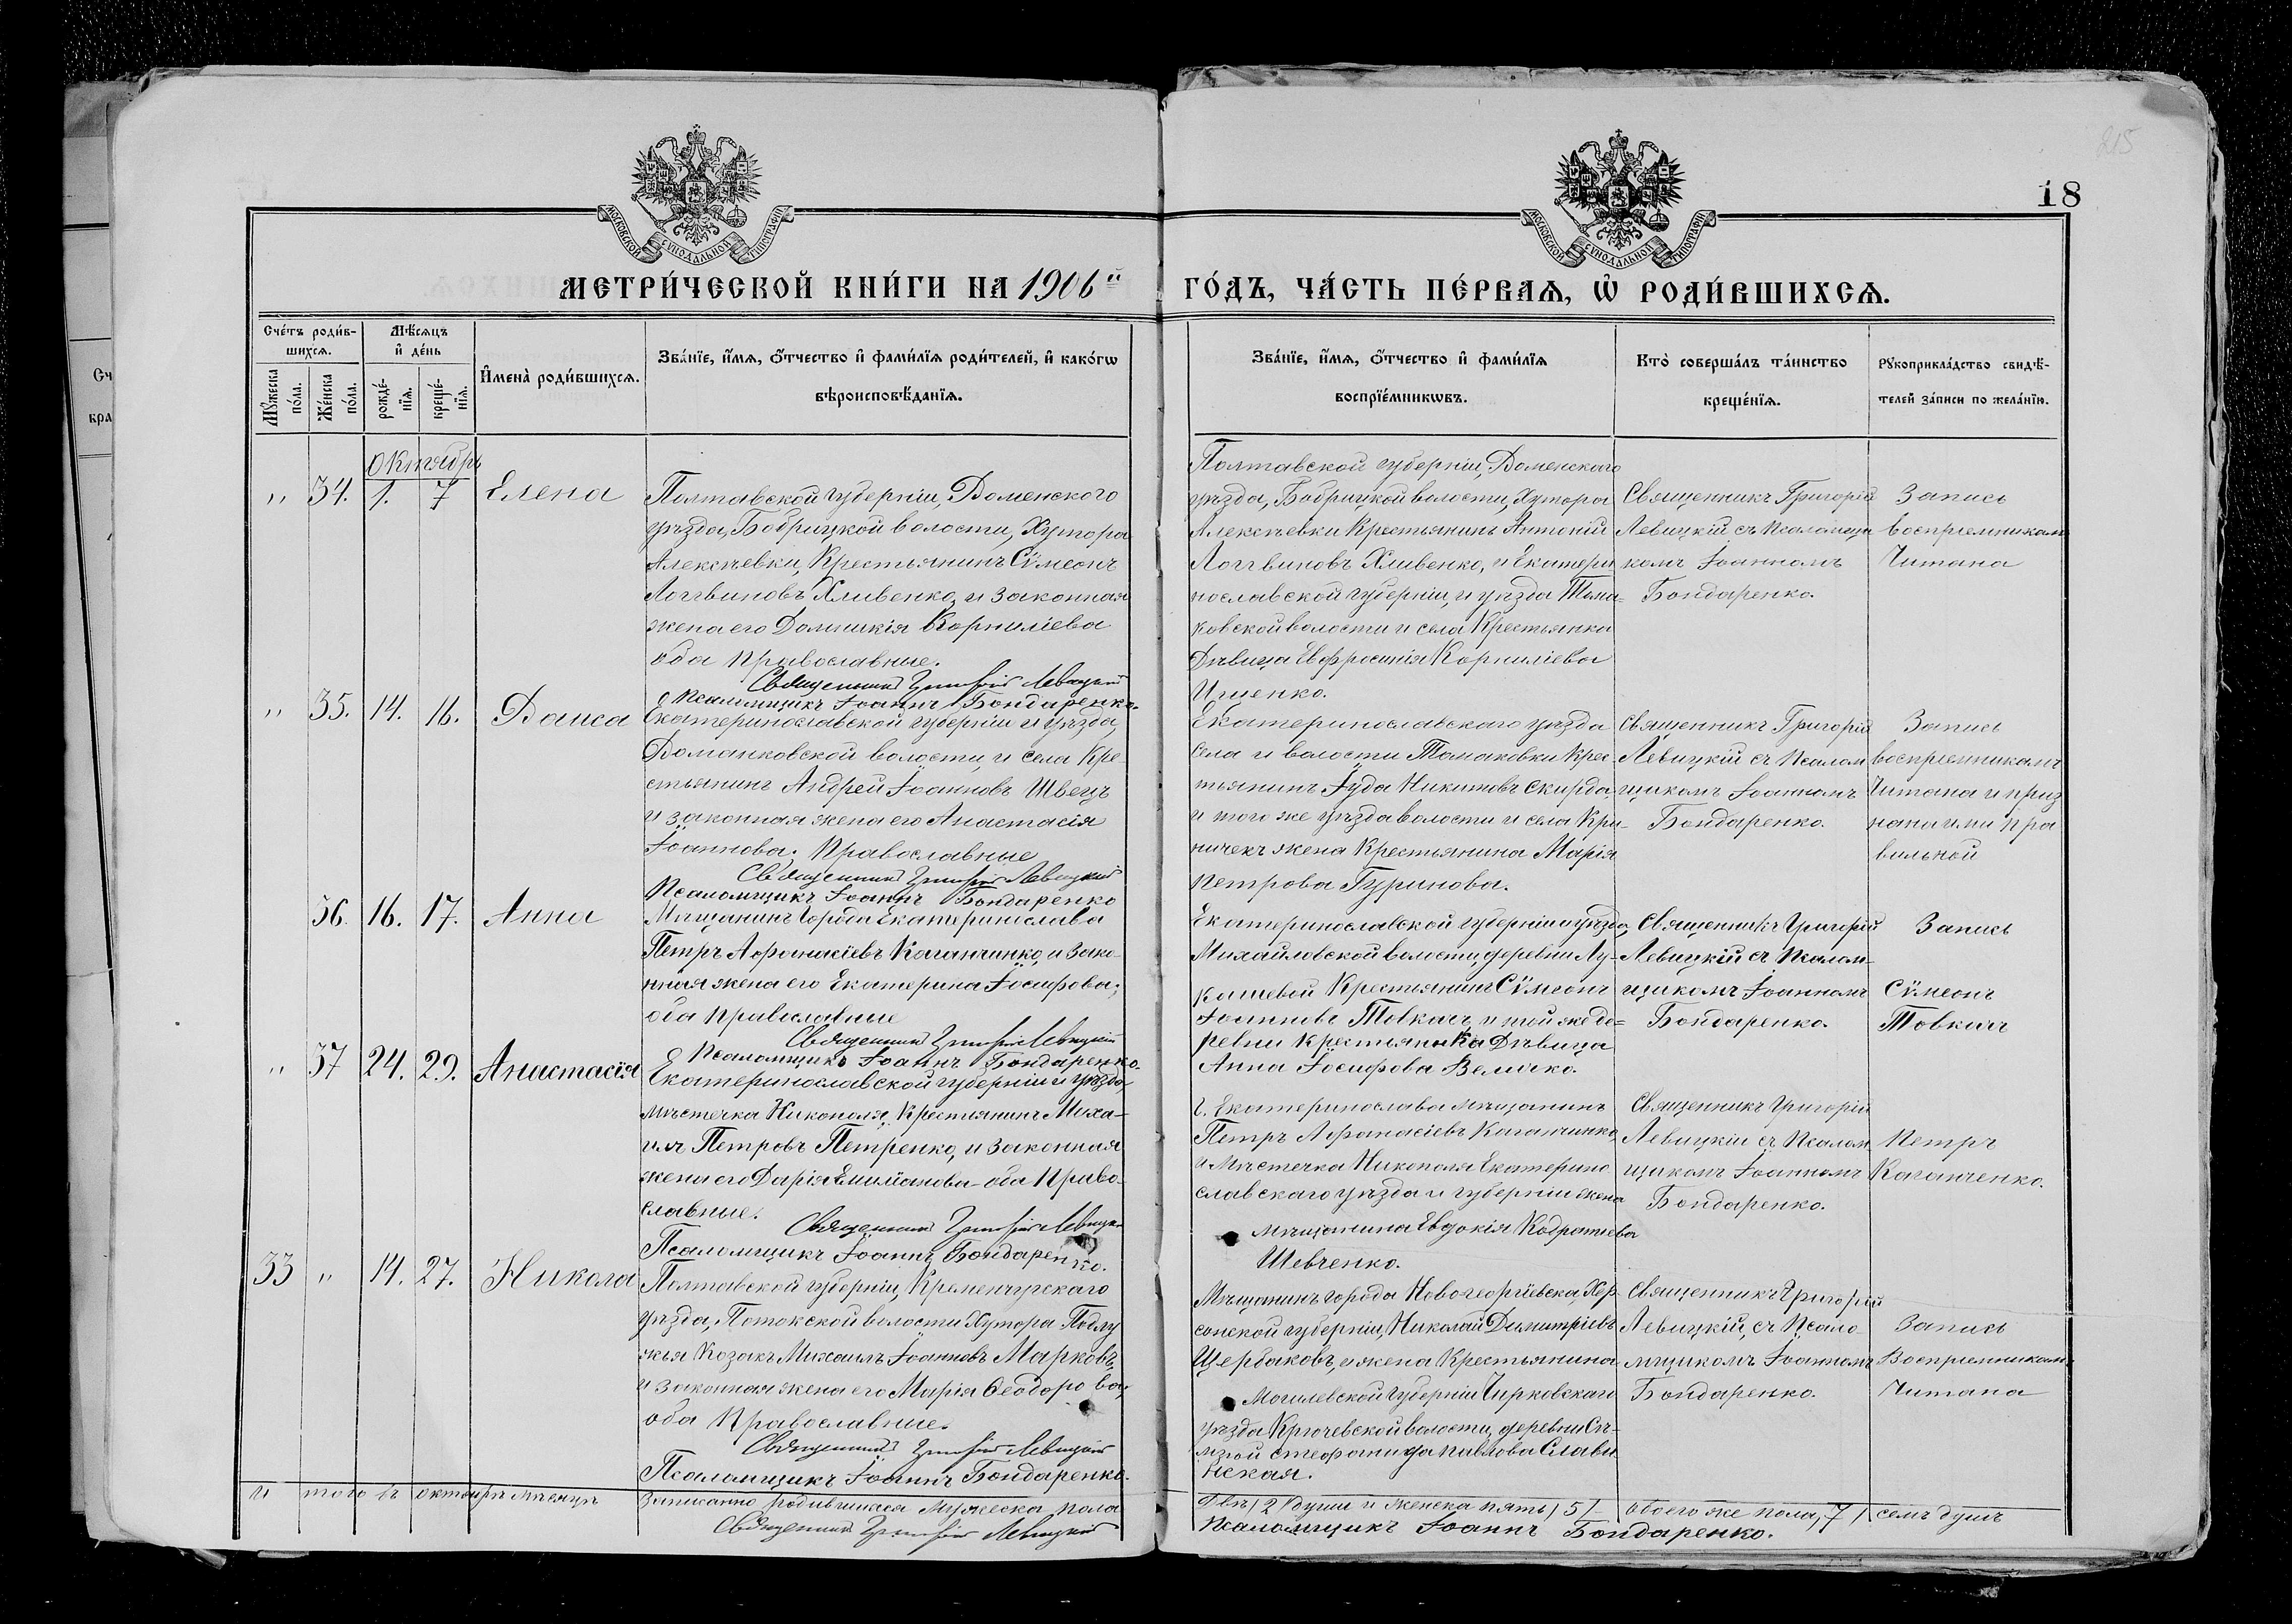 215
18
МОСКОВСКОЙ СѴНОДАЛЬНОЙ ТИПОГРАФІИ
МОСКОВСКОЙ СѴНОДАЛЬНОЙ ТИПОГРАФІИ
МЕТРИ́ЧЕСКОЙ КНИ́ГИ НА 1906й
ГО́ДЪ, ЧА́СТЬ ПЕ́РВАѦ, Ѡ҆ РОДИ́ВШИХСѦ.
Сче́тъ роди́в-
шихсѧ.
Мꙋ́жеска по́ла.
Же́нска по́ла.
Мѣ́сѧцъ
и҆ де́нь
рожде́-нїѧ.
креще́-нїѧ.
И҆мена̀ роди́вшихсѧ.
Зва́нїе, и҆́мѧ, ѻ҆́тчество и҆ фами́лїѧ роди́телей, и҆ како́гѡ
вѣроисповѣ́данїѧ.
Зва́нїе, и҆́мѧ, ѻ҆́тчество и҆ фами́лїѧ
воспрїе́мникѡвъ.
Кто̀ соверша́лъ та́инство
креще́нїѧ.
Рꙋкоприкла́дство свидѣ́-
телей за́писи по жела́нїю.
Октябрь
,, 34. 1. 7 Елена
Полтавской губерніи, Роменского
уѣзда, Бобрицкой волости, Хутора
Алексѣевки, Крестьянинъ Сѵмеонъ
Логгвиновъ Хливенко, и законная
жена его Домникія Корниліева
оба православные.
Священникъ Григорій Левицкій
Псаломщикъ Іоаннъ Бондаренко.
Полтавской губерніи, Роменскаго
уѣзда, Бобрицкой волости, Хутора
Алексѣевки Крестьянинъ Антоній
Логгвиновъ Хливенко, и Екатери
нославской губерніи, и уѣзда Тома-
ковской волости и села Крестьянка
Дѣвица Евфросинія Корниліева
Ищенко.
Священникъ Григорій
Левицкій съ Псаломщи
комъ Іоанномъ
Бондаренко.
Запись
воспріемникам
Читана
,, 35. 14. 16. Раиса
Екатеринославской губерніи и уѣзда,
Томаковской волости, и села Кре
стьянинъ Андрей Іоанновъ Швецъ
и законная жена его Анастасія
Іоаннова. Православные
Священникъ Григорій Левицкій
Псаломщикъ Іоаннъ Бондаренко
Екатеринославскаго уѣзда
села и волости Томаковки Крес-
тьянинъ Іуда Никитовъ Скирда
и того же уѣзда волости и села Кри-
ничекъ жена Крестьянина Марія
Петрова Гуринова.
Священникъ Григорій
Левицкій съ Псалом
щикомъ Іоанномъ
Бондаренко.
Запись
воспріемникамъ
Читана и приз
нана ими пра
вильной
36. 16. 17. Анна
Мѣщанинъ города Екатеринослава
Петръ Афанасіевъ Каганченко, и зако-
нная жена его Екатерина Іосифова;
оба Православные
Священникъ Григорій Левицкій
Псаломщикъ Іоаннъ Бондаренко.
Екатеринославской губерніи и уѣзда,
Михайловской волости, деревни Лу-
кашевой Крестьянинъ Сѵмеонъ
Іоанновъ Товкачъ, и той же де=
ревни Крестьянка Дѣвица
Анна Іосифова Величко.
Священникъ Григорій
Левицкій съ Псалом-
щикомъ Іоанномъ
Бондаренко.
Запись
Сѵмеонъ
Товкачъ
,, 37 24. 29. Анастасія
Екатеринославской губерніи и уѣзда,
мѣстечка Никополя, Крестьянинъ Миха-
илъ Петровъ Петренко, и законная
жена его Дарія Емиліанова оба Право-
славные.
Священникъ Григорій Левицкій
Псаломщикъ Іоаннъ Бондаренко.
г. Екатеринослава мѣщанинъ
Петръ Афанасіевъ Каганченко,
и Мѣстечка Никополя Екатерино
славскаго уѣзда и губерніи жена
мѣщанина Евдокія Кодратіева
Шевченко.
Священникъ Григорій
Левицкій съ Псалом
щикомъ Іоанномъ
Бондаренко.
Петръ
Каганченко.
33 ,, 14. 27. Никола
Полтавской губерніи, Кременчугскаго
уѣзда, Потокской волости Хутора Подлу
жья Козакъ Михаилъ Іоанновъ Марковъ,
и законная жена его Марія Ѳеодорова;
оба Православные.
Священникъ Григорій Левицкій
Псаломщикъ Іоаннъ Бондаренко.
Мѣщанинъ города Новогеоргіевска, Хер-
сонской губерніи, Николай Димитріевъ
Щербаковъ, и жена Крестьянина
Могилевской губерніи Чирковскаго
уѣзда Крючевской волости, деревни
Стефанида Павлова Слави
нская.
Священникъ Григорій
Левицкій, съ Псало-
мщикомъ Іоанномъ
Бондаренко.
Запись
Воспріемникам.
Читана
И того въ октябрѣ мѣсяцѣ записанно родившихся мужеска пола
два /2/ души и женска пять /5/ обоего же пола, /7/ семъ душъ
Священникъ Григорій Левицкій
Псаломщикъ Іоаннъ Бондаренко.